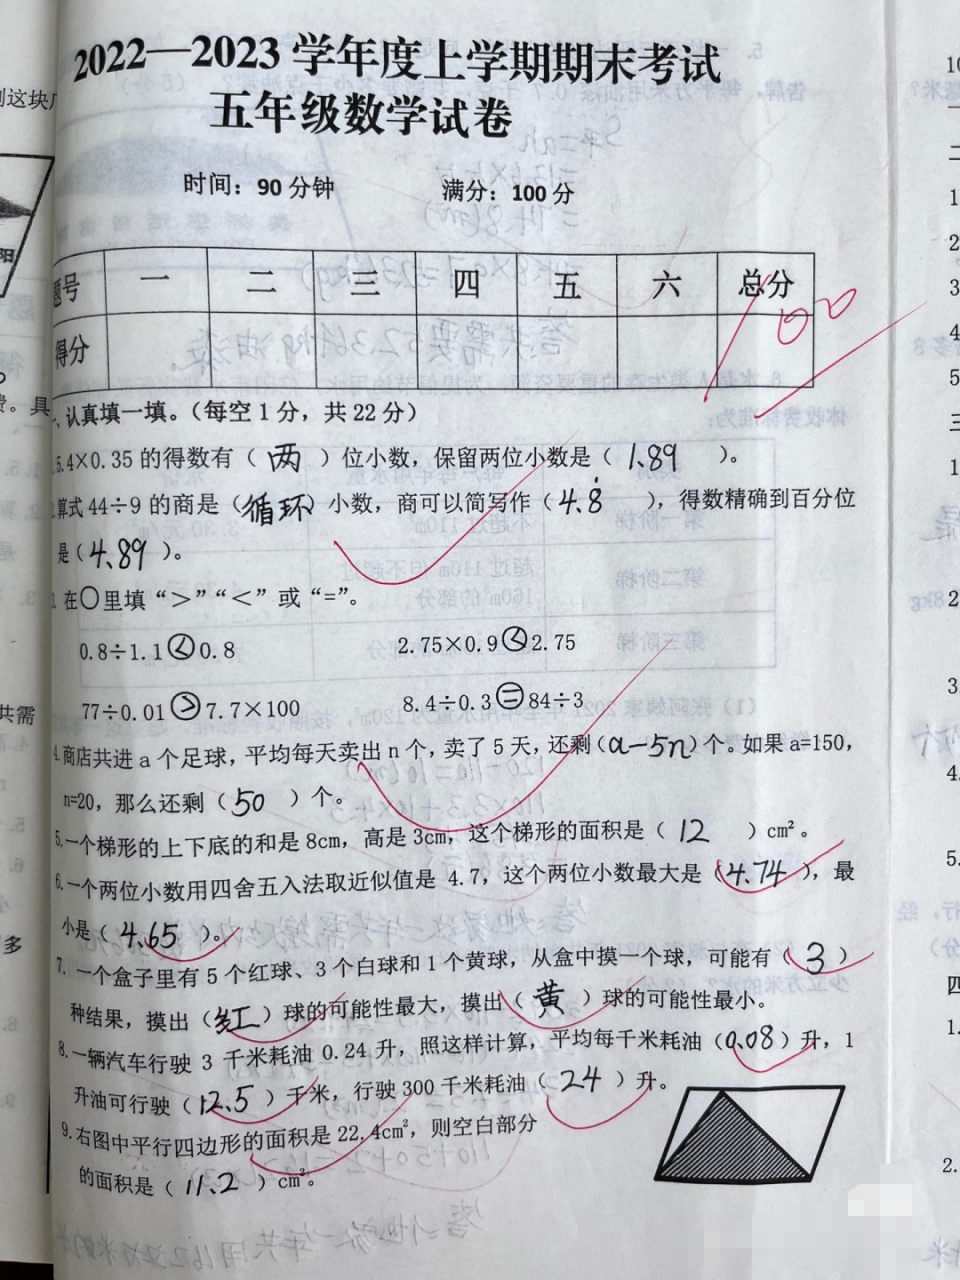 2022—2023 学年度上学期期末考试
五年级数学试卷
时间：90 分钟 满分：100 分
题号 一 二 三 四 五 六 总分
得分 100
一、认真填一填。（每空 1 分，共 22 分）
1.5.4×0.35 的得数有（ 两 ）位小数，保留两位小数是（ 1.89 ）。
2.算式 44÷9 的商是（循环）小数，商可以简写作（4.8̇ ），得数精确到百分位
是（4.89 ）。
3. 在○里填“>”“<”或“=”。
0.8÷1.1 < 0.8 2.75×0.9 < 2.75
77÷0.01 > 7.7×100 8.4÷0.3 = 84÷3
4.商店共进 a 个足球，平均每天卖出 n 个，卖了 5 天，还剩（a-5n）个。如果 a=150，
n=20，那么还剩（ 50 ）个。
5.一个梯形的上下底的和是 8cm，高是 3cm，这个梯形的面积是（ 12 ）cm²。
6.一个两位小数用四舍五入法取近似值是 4.7，这个两位小数最大是（4.74 ），最
小是（ 4.65 ）。
7. 一个盒子里有 5 个红球、3 个白球和 1 个黄球，从盒中摸一个球，可能有（ 3 ）
种结果，摸出（红）球的可能性最大，摸出（ 黄 ）球的可能性最小。
8.一辆汽车行驶 3 千米耗油 0.24 升，照这样计算，平均每千米耗油（0.08）升，1
升油可行驶（12.5 ）千米，行驶 300 千米耗油（ 24 ）升。
9.右图中平行四边形的面积是 22.4cm²，则空白部分
的面积是（ 11.2 ）cm²。